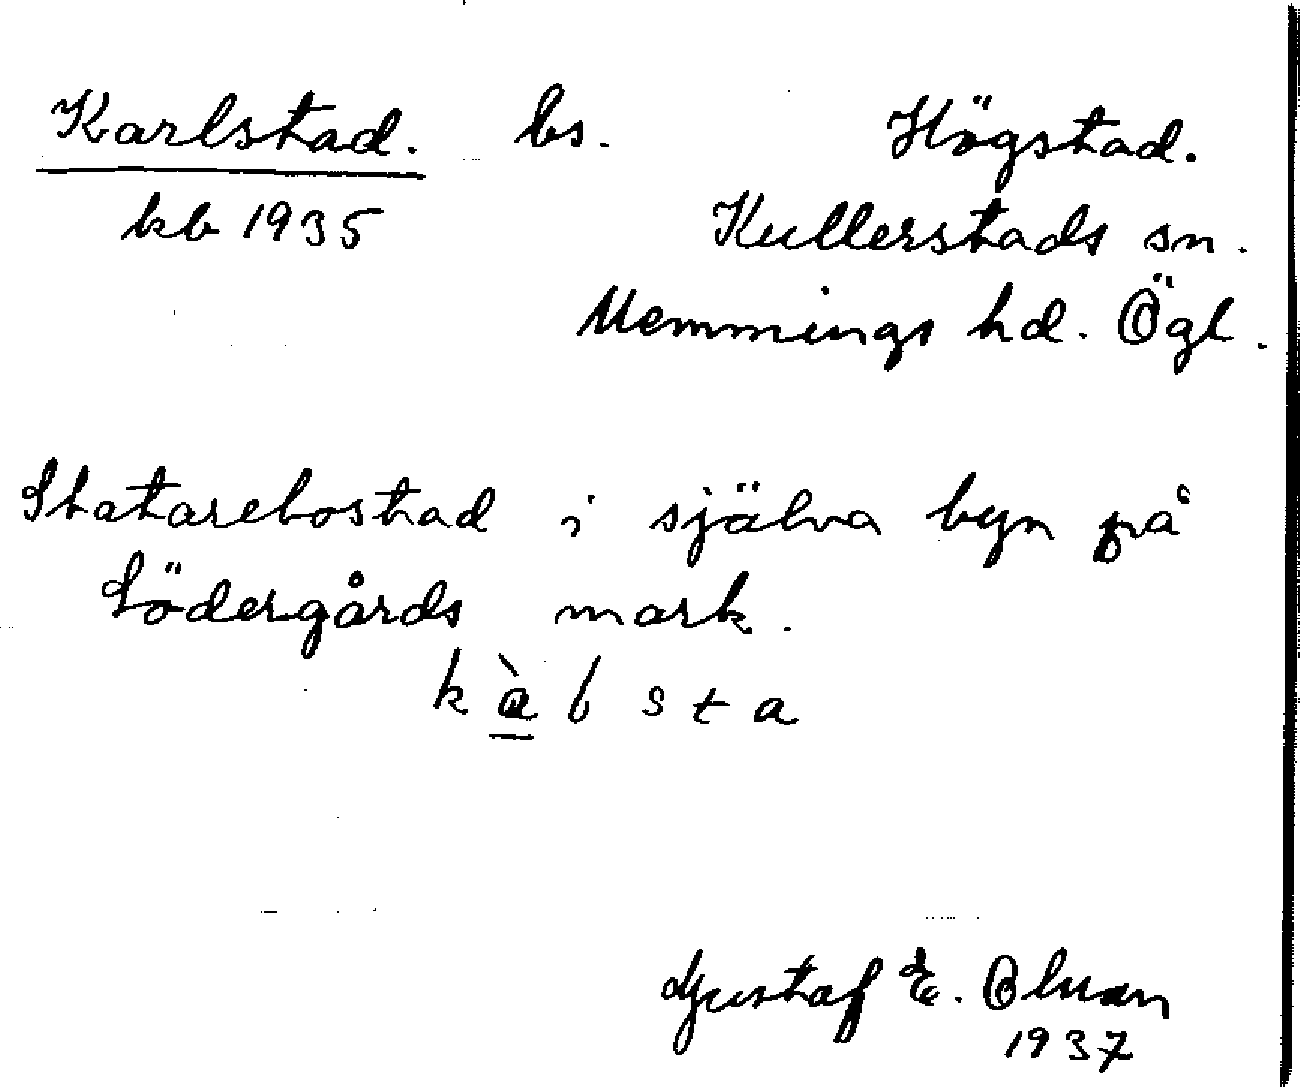 Karlstad. bs. Högstad.
kb 1935 Kullerstads sn.
Memmings hd. Ögl.
Statarebostad i själva byn på
Södergårds mark.
k à b s t a
Gustaf E.
1937